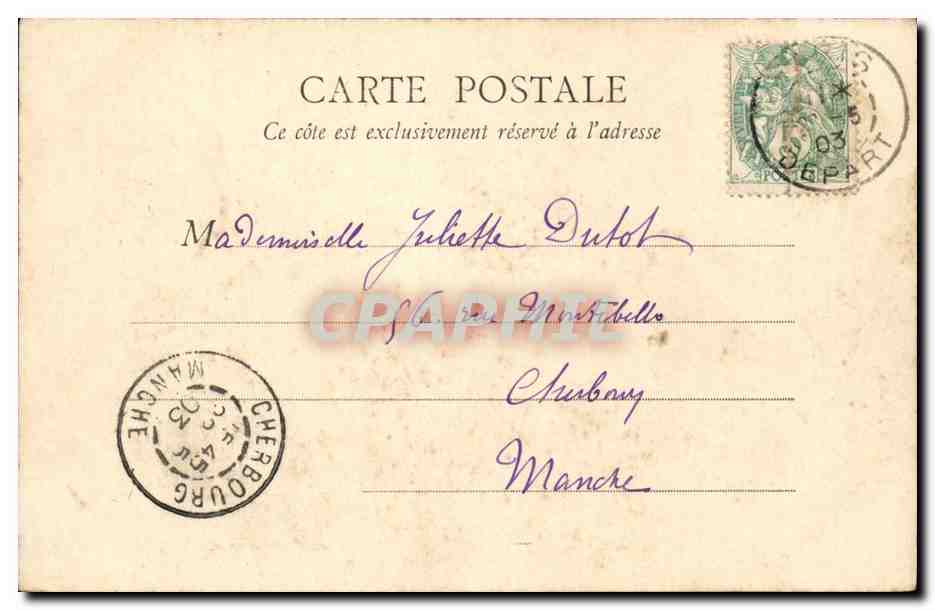 CARTE POSTALE
Ce côte est exclusivement réservé à l'adresse
DEPART
03
Mademoiselle Juliette Dutot
56 rue Montebello
CPAPHIL
Cherbourg
Manche
CHERBOURG
MANCHE
03